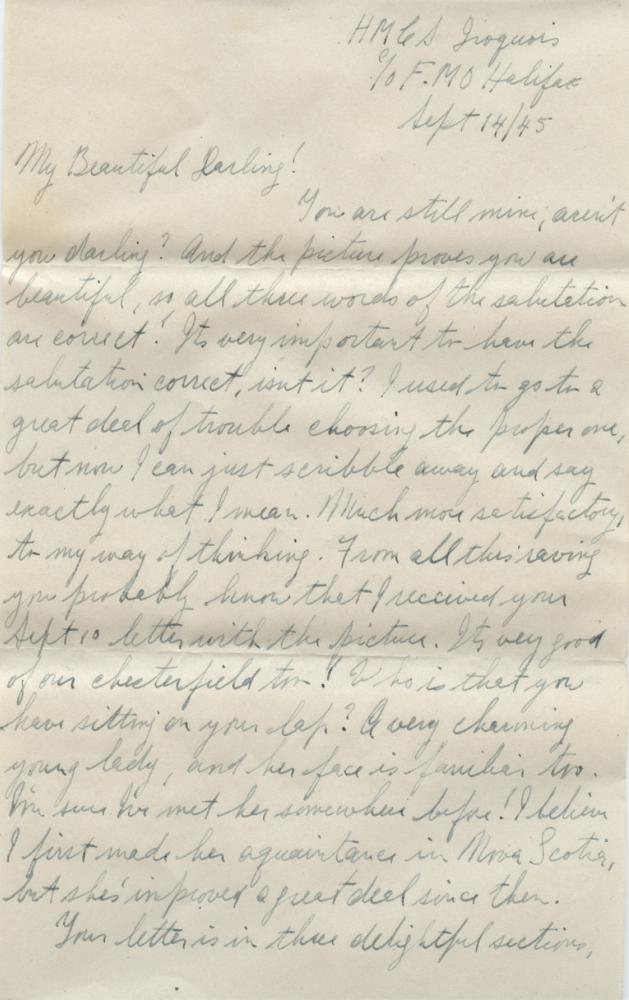 HMCS Iroquois
c/o F.M.O Halifax
Sept 14/45
My Beautiful Darling!
You are still mine, aren't
you darling? And the picture proves you are
beautiful, so all three words of the salutation
are correct! Its very important to have the
salutation correct, isnt it? I used to go to a
great deal of trouble choosing the proper one,
but now I can just scribble away and say
exactly what I mean. Much more satisfactory,
to my way of thinking. From all this raving
you probably know that I received your
Sept 10 letter with the picture. Its very good
of our chesterfield too! Who is that you
have sitting on your lap? A very charming
young lady, and her face is familiar too.
I'm sure I've met her somewhere before! I believe
I first made her aquaintance in Nova Scotia,
but she's improved a great deal since then.
Your letter is in three delightful sections,